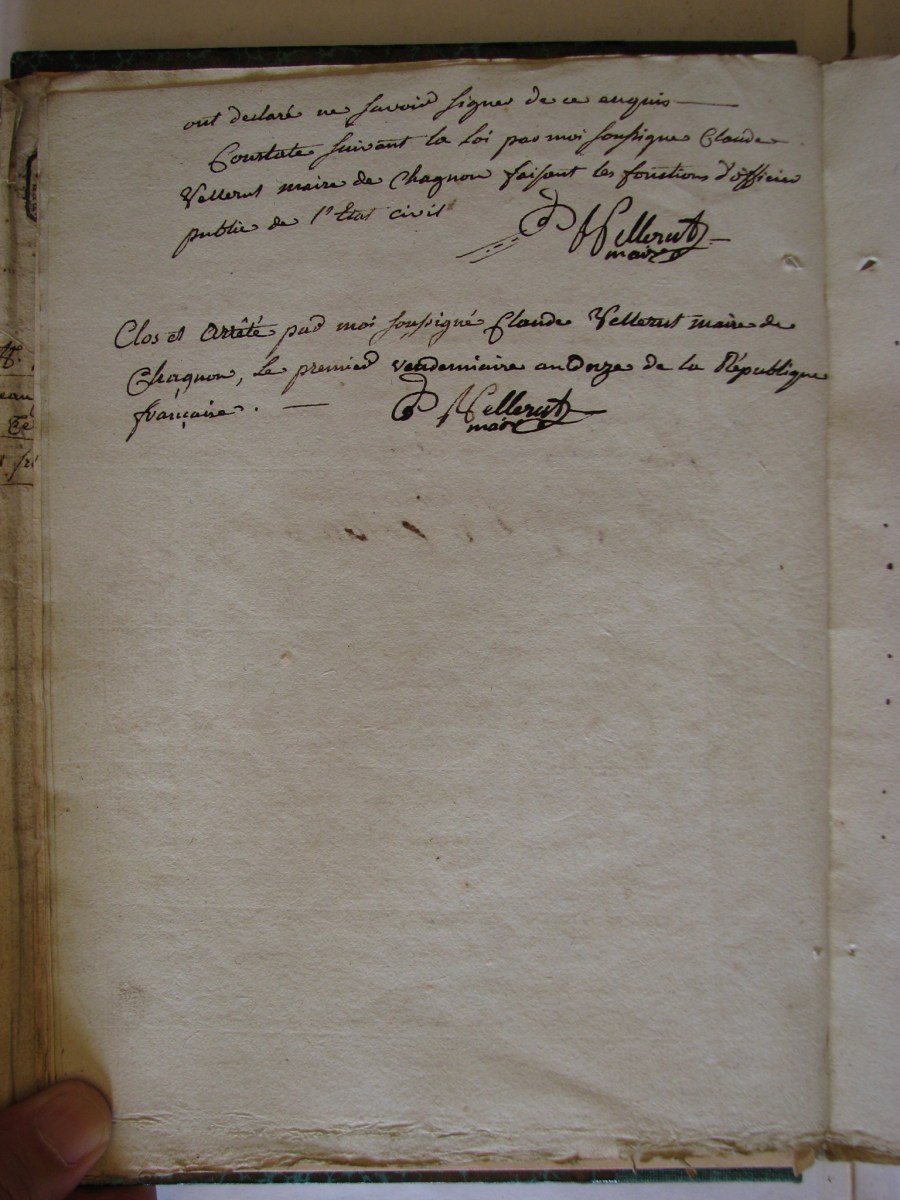 ont declaré ne savoir signer de ce enquis
Constaté suivant la Loi par moi soussigné Claude
Vellerut maire de Chagnon faisant les fonctions d'officier
public de l'Etat civil
Vellerut
maire
Clos et Arrêté par moi soussigné Claude Vellerut maire de
Chagnon, le premier vendemiaire an Onze de la République
française.
Vellerut
maire